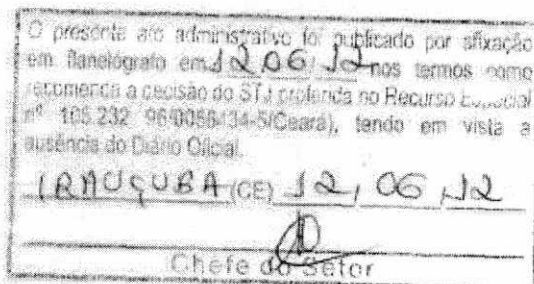 O presente ato administrativo foi publicado por afixação
em flanelógrafo em 12,06/12 nos termos como
recomenda a decisão do STJ proferida no Recurso Especial
nº 105.232 96/0056434-5/Ceará), tendo em vista a
ausência do Diário Oficial.
IRAUÇUBA (CE) 12, 06, 12
Chefe do Setor